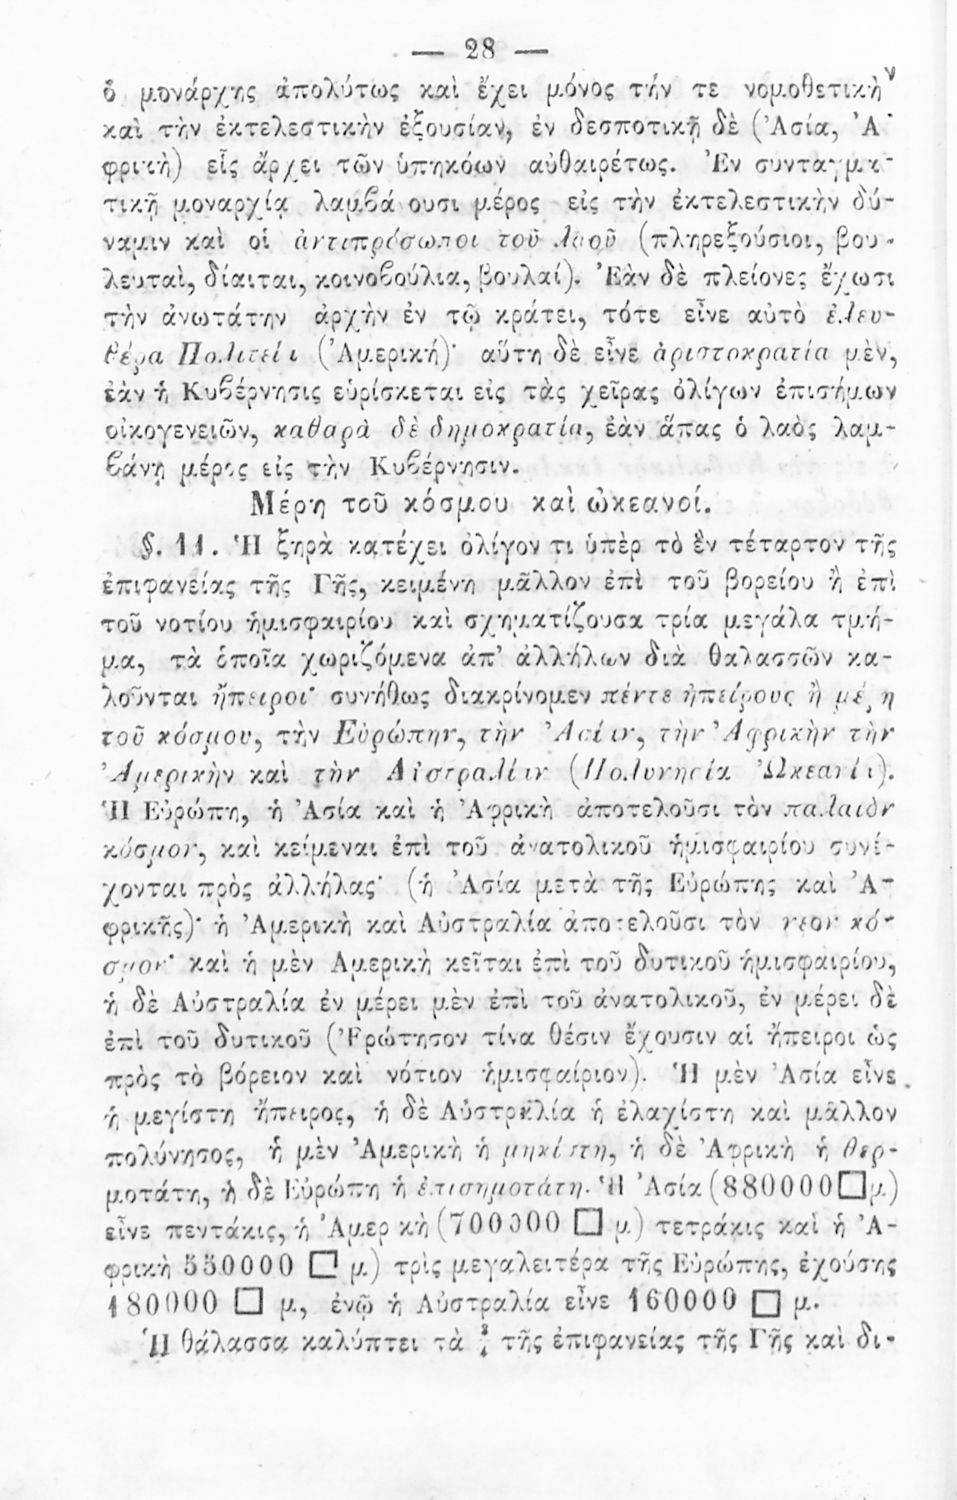 — 28 —
ὁ μονάρχης ἀπολύτως καὶ ἔχει μόνος τήν τε νομοθετικὴν
καὶ τὴν ἐκτελεστικὴν ἐξουσίαν, ἐν δεσποτικῇ δὲ (Ἀσία, Ἀ-
φρικὴ) εἷς ἄρχει τῶν ὑπηκόων αὐθαιρέτως. Ἐν συνταγμα-
τικῇ μοναρχίᾳ λαμβάνουσι μέρος εἰς τὴν ἐκτελεστικὴν δύ-
ναμιν καὶ οἱ ἀντιπρόσωποι τοῦ λαοῦ (πληρεξούσιοι, βου-
λευταὶ, δίαιται, κοινοβούλια, βουλαί). Ἐὰν δὲ πλείονες ἔχωσι
τὴν ἀνωτάτην ἀρχὴν ἐν τῷ κράτει, τότε εἶνε αὐτὸ ἐλευ-
θέρα Πολιτεία (Ἀμερική)· αὕτη δὲ εἶνε ἀριστοκρατία μὲν,
ἐὰν ἡ Κυβέρνησις εὑρίσκεται εἰς τὰς χεῖρας ὀλίγων ἐπισήμων
οἰκογενειῶν, καθαρὰ δὲ δημοκρατία, ἐὰν ἅπας ὁ λαὸς λαμ-
βάνῃ μέρος εἰς τὴν Κυβέρνησιν.
Μέρη τοῦ κόσμου καὶ ὠκεανοί.
§. 11. Ἡ ξηρὰ κατέχει ὀλίγον τι ὑπὲρ τὸ ἓν τέταρτον τῆς
ἐπιφανείας τῆς Γῆς, κειμένη μᾶλλον ἐπὶ τοῦ βορείου ἢ ἐπὶ
τοῦ νοτίου ἡμισφαιρίου καὶ σχηματίζουσα τρία μεγάλα τμή-
μα, τὰ ὁποῖα χωριζόμενα ἀπ’ ἀλλήλων διὰ θαλασσῶν κα-
λοῦνται ἤπειροι· συνήθως διακρίνομεν πέντε ἠπείρους ἢ μέρη
τοῦ κόσμου, τὴν Εὐρώπην, τὴν Ἀσίαν, τὴν Ἀφρικὴν τὴν
Ἀμερικὴν καὶ τὴν Αὐστραλίαν (Πολυνησία Ὠκεανία).
Ἡ Εὐρώπη, ἡ Ἀσία καὶ ἡ Ἀφρικὴ ἀποτελοῦσι τὸν παλαιὸν
κόσμον, καὶ κείμεναι ἐπὶ τοῦ ἀνατολικοῦ ἡμισφαιρίου συνέ-
χονται πρὸς ἀλλήλας· (ἡ Ἀσία μετὰ τῆς Εὐρώπης καὶ Ἀ-
φρικῆς)· ἡ Ἀμερικὴ καὶ Αὐστραλία ἀποτελοῦσι τὸν νεον κό-
σμον· καὶ ἡ μὲν Ἀμερικὴ κεῖται ἐπὶ τοῦ δυτικοῦ ἡμισφαιρίου,
ἡ δὲ Αὐστραλία ἐν μέρει μὲν ἐπὶ τοῦ ἀνατολικοῦ, ἐν μέρει δὲ
ἐπὶ τοῦ δυτικοῦ (Ἐρώτησον τίνα θέσιν ἔχουσιν αἱ ἤπειροι ὡς
πρὸς τὸ βόρειον καὶ νότιον ἡμισφαίριον). Ἡ μὲν Ἀσία εἶνε
ἡ μεγίστη ἤπειρος, ἡ δὲ Αὐστραλία ἡ ἐλαχίστη καὶ μᾶλλον
πολύνησος, ἡ μὲν Ἀμερικὴ ἡ μηκίστη, ἡ δὲ Ἀφρικὴ ἡ θερ-
μοτάτη, ἡ δὲ Εὐρώπη ἡ ἐπισημοτάτη. Ἡ Ἀσία (880000 □ μ)
εἶνε πεντάκις, ἡ Ἀμερικὴ (700000 □ μ) τετράκις καὶ ἡ Ἀ-
φρικὴ 550000 □ μ) τρὶς μεγαλειτέρα τῆς Εὐρώπης, ἐχούσης
180000 □ μ, ἐνῷ ἡ Αὐστραλία εἶνε 160000 □ μ.
Ἡ θάλασσα καλύπτει τὰ τῆς ἐπιφανείας τῆς Γῆς καὶ δι-